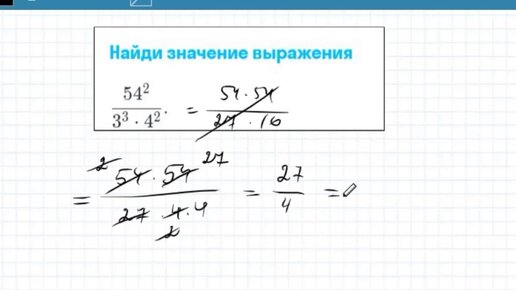 Найди значение выражения
54² / (3³ · 4²) . = 54 · 54 / (27 · 16)
2 27
= 54 · 54 / (27 · 4 · 4) = 27 / 4 =
2